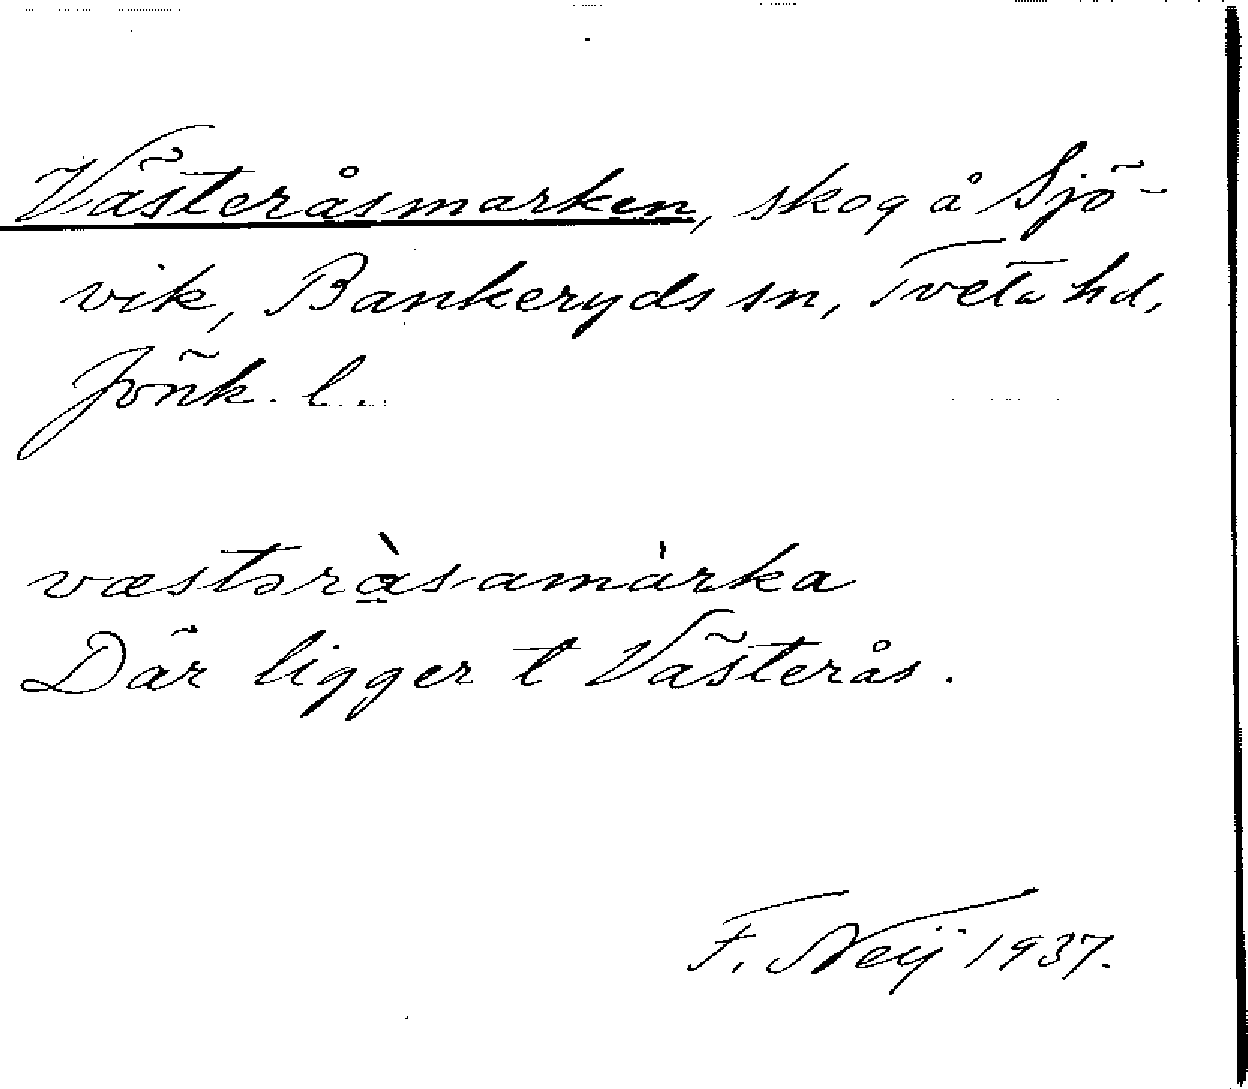 Västeråsmarken, skog å Sjö-
vik, Bankeryds sn, Tveta hd,
Jönk. l.
væstəràsamàrka
Där ligger t Västerås.
F. Neij 1937.